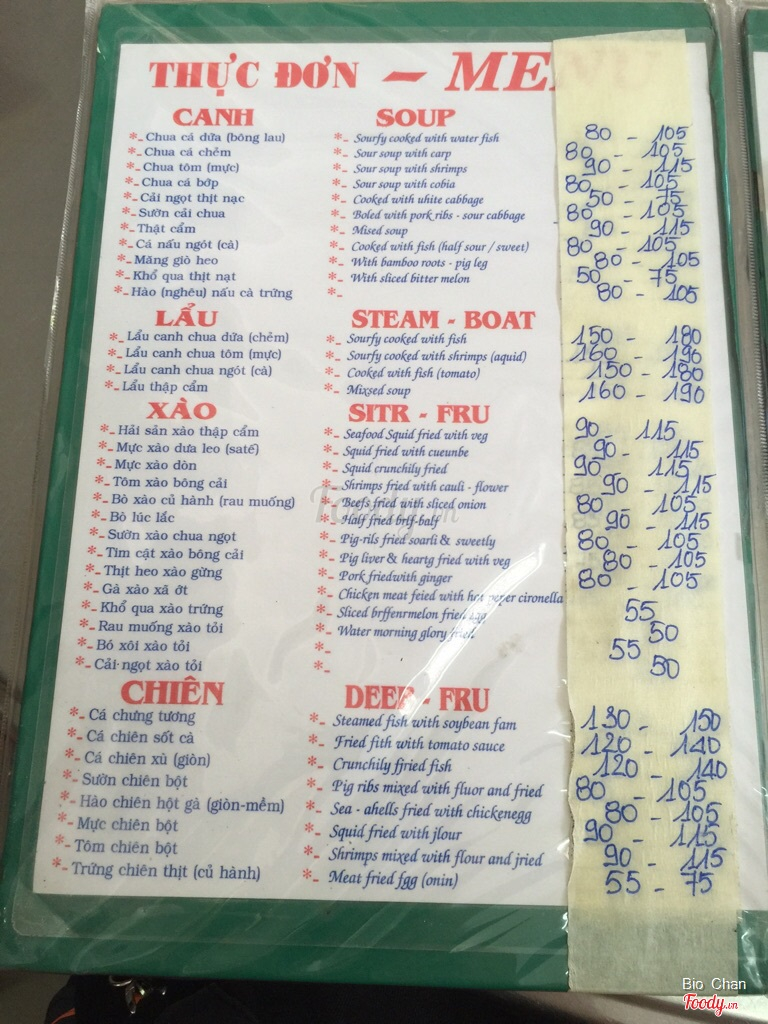 THỰC ĐƠN – ME
CANH SOUP
*- Chua cá dứa (bông lau) *- Sourfy cooked with water fish 80 - 105
*- Chua cá chẻm *- Sour soup with carp 80 - 105
*- Chua tôm (mực) *- Sour soup with shrimps 90 - 115
*- Chua cá bớp *- Sour soup with cobia 80 - 105
*- Cải ngọt thịt nạc *- Cooked with white cabbage 50 - 75
*- Sườn cải chua *- Boled with pork ribs - sour cabbage 80 - 105
*- Thật cẩm *- Mised soup 90 - 115
*- Cá nấu ngót (cà) *- Cooked with fish (half sour / sweet) 80 - 105
*- Măng giò heo *- With bamboo roots - pig leg 80 - 105
*- Khổ qua thịt nạt *- With sliced bitter melon 50 - 75
*- Hào (nghêu) nấu cà trứng *- 80 - 105
LẨU STEAM - BOAT
*- Lẩu canh chua dứa (chẻm) *- Sourfy cooked with fish 150 - 180
*- Lẩu canh chua tôm (mực) *- Sourfy cooked with shrimps (aquid) 160 - 190
*- Lẩu canh chua ngót (cà) *- Cooked with fish (tomato) 150 - 180
*- Lẩu thập cẩm *- Mixsed soup 160 - 190
XÀO SITR - FRU
*- Hải sản xào thập cẩm *- Seafood Squid fried with veg 90 - 115
*- Mực xào dưa leo (saté) *- Squid fried with cueunbe 90 - 115
*- Mực xào dòn *- Squid crunchily fried 90 - 115
*- Tôm xào bông cải *- Shrimps fried with cauli - flower 90 - 115
*- Bò xào củ hành (rau muống) *- Beefs fried with sliced onion 80 - 105
*- Bò lúc lắc *- Half fried brff-balf 90 - 115
*- Sườn xào chua ngọt *- Pig-rils fried soarli & sweetly 80 - 105
*- Tim cật xào bông cải *- Pig liver & heartg fried with veg 80 - 105
*- Thịt heo xào gừng *- Pork friedwith ginger 80 - 105
*- Gà xào xả ớt *- Chicken meat feied with hot peper cironella
*- Khổ qua xào trứng *- Sliced brffenrmelon fried egg 55
*- Rau muống xào tỏi *- Water morning glory fried 50
*- Bó xôi xào tỏi *- 55
*- Cải ngọt xào tỏi *- 50
CHIÊN DEEP - FRU
*- Cá chưng tương *- Steamed fish with soybean fam 130 - 150
*- Cá chiên sốt cà *- Fried fith with tomato sauce 120 - 140
*- Cá chiên xù (giòn) *- Crunchily ffried fish 120 - 140
*- Sườn chiên bột *- Pig ribs mixed with fluor and fried 80 - 105
*- Hào chiên hột gà (giòn-mềm) *- Sea - ahells fried with chickenegg 80 - 105
*- Mực chiên bột *- Squid fried with jlour 90 - 115
*- Tôm chiên bột *- Shrimps mixed with flour and jried 90 - 115
*- Trứng chiên thịt (củ hành) *- Meat fried fgg (onin) 55 - 75
Foody.vn
Bio Chan
Foody.vn